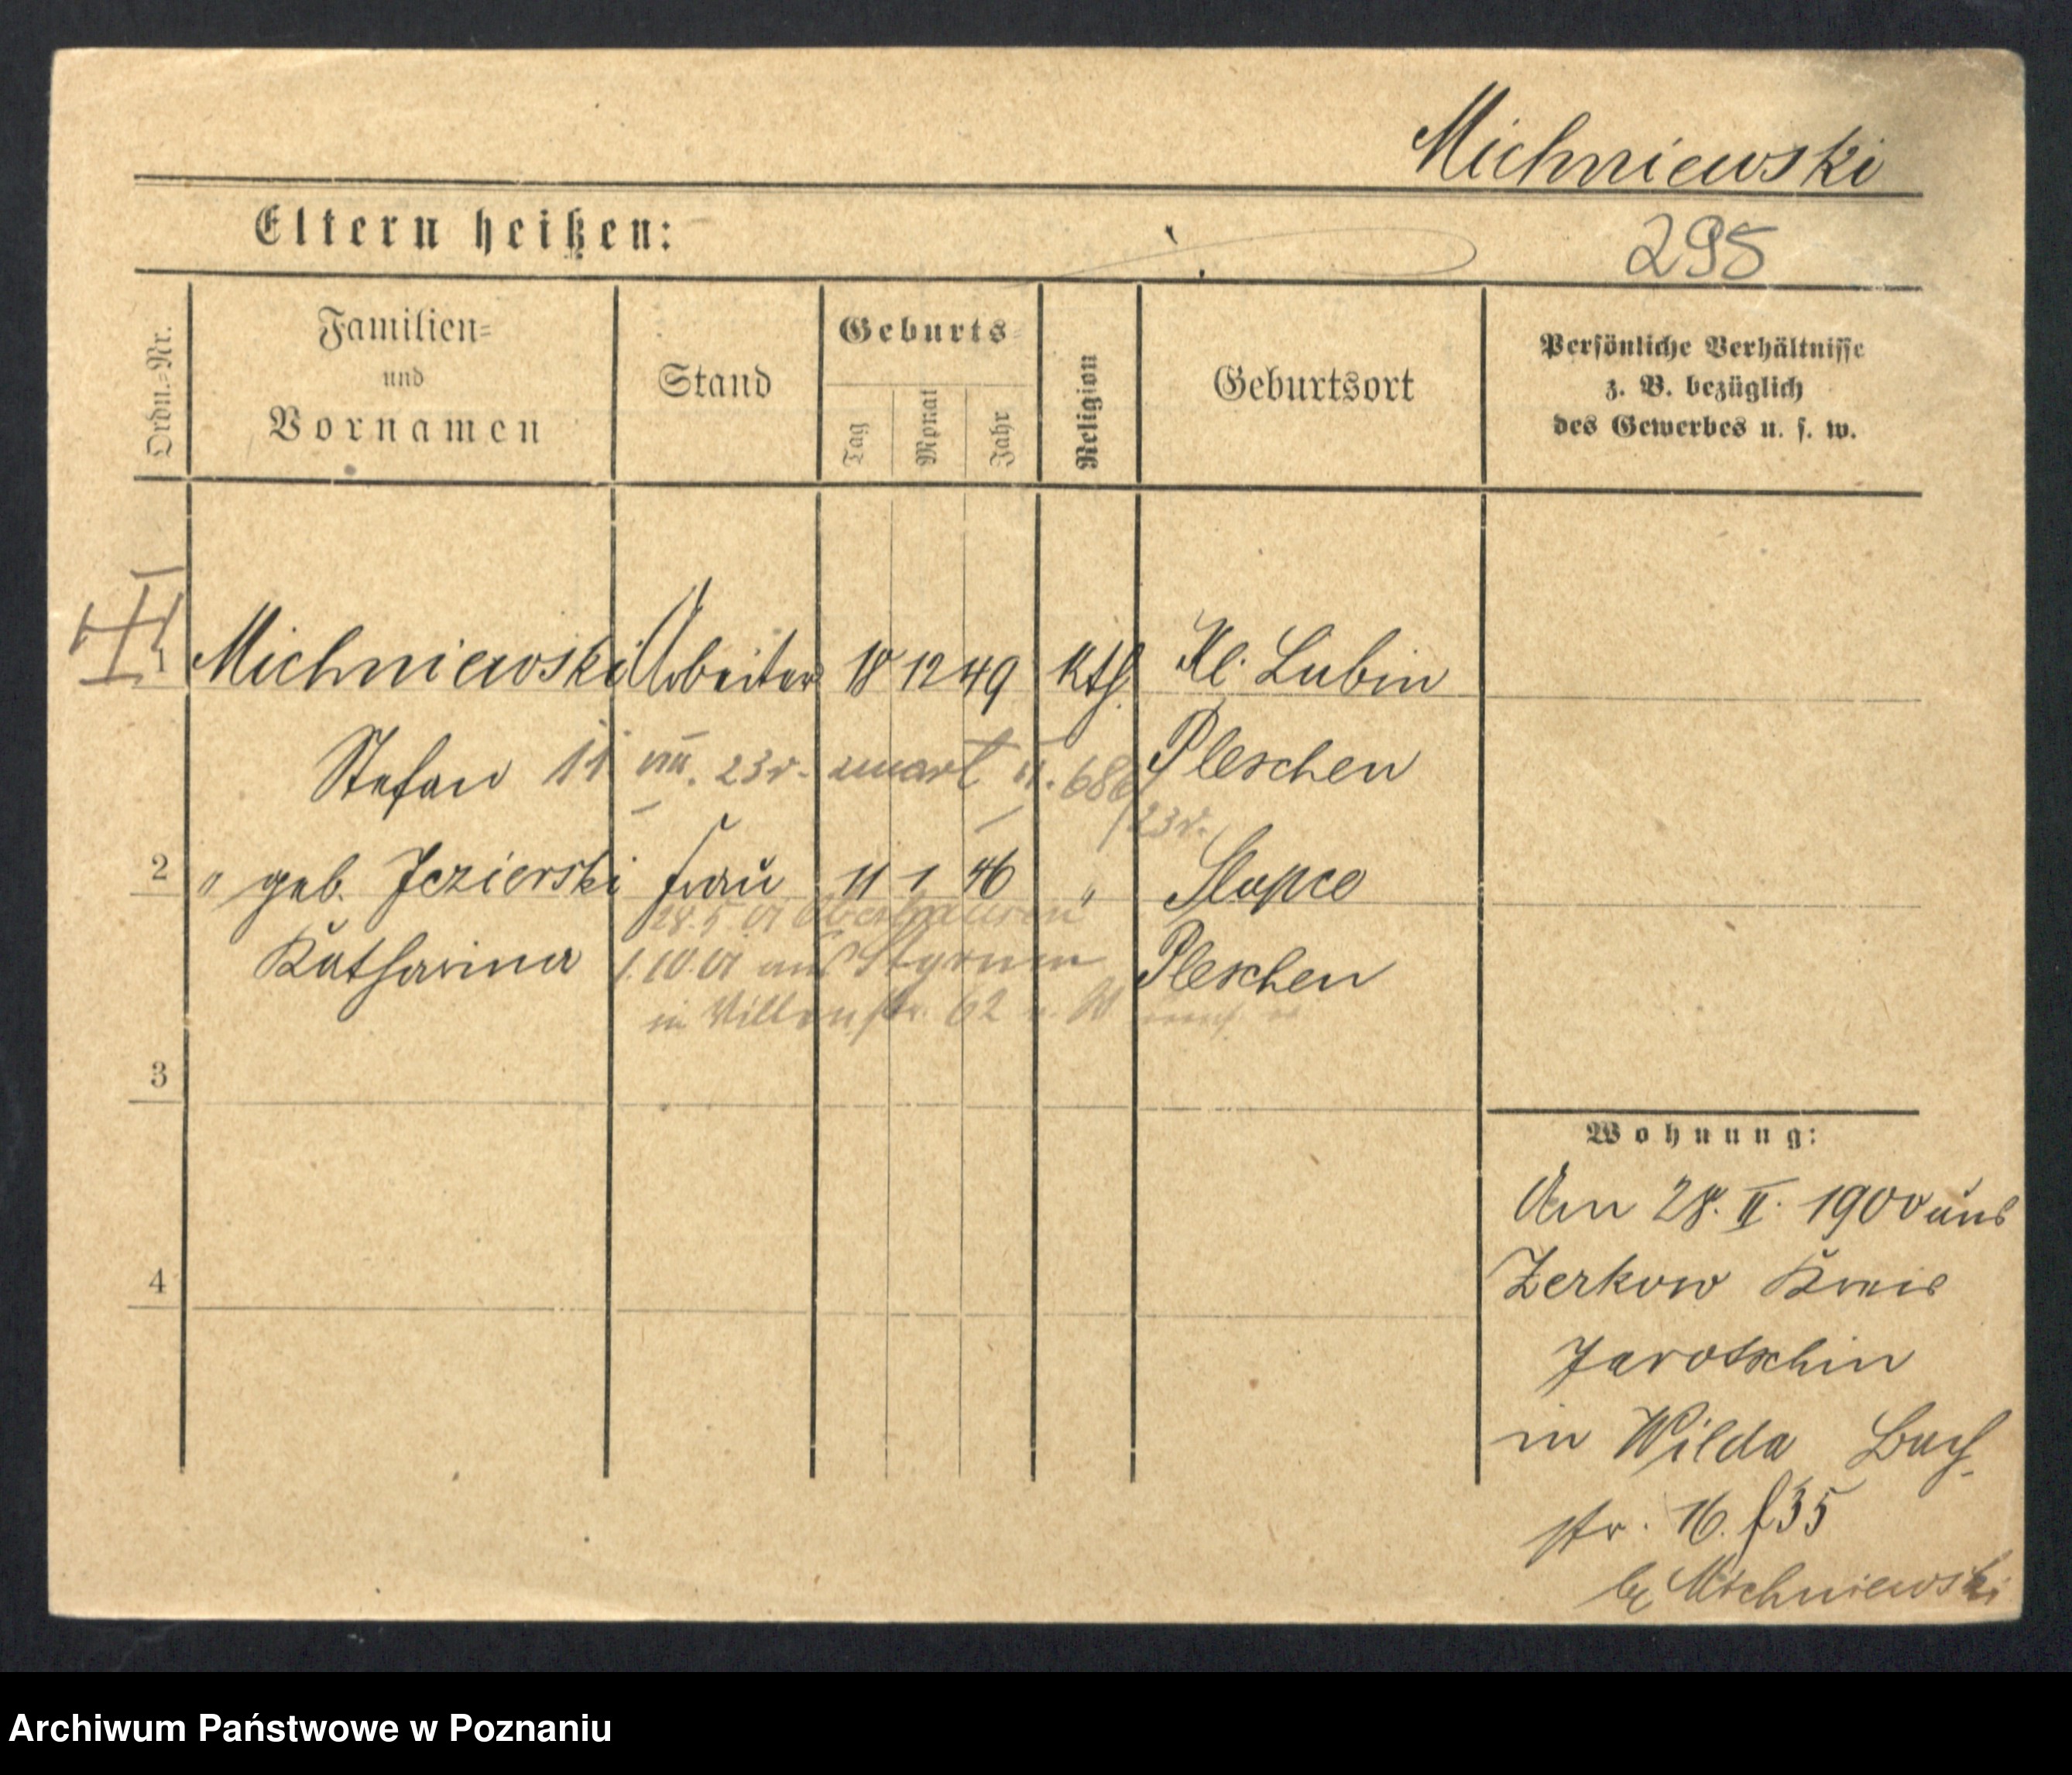 Michniewski
Eltern heißen:
295
Ordn.=Nr.
Familien=
und
Vornamen
Stand
Geburts=
Tag
Monat
Jahr
Religion
Geburtsort
Persönliche Verhältnisse
z. B. bezüglich
des Gewerbes u. s. w.
1 Michniewski Arbeiter 18 12 49 Kth. Kl. Lubin
Stefan 11 VIII. 23r. zmarł 686/23r. Pleschen
2 " geb. Jezierski Frau 11 1 46 " Slupce
28.5.01 Oberhausen
Katharina 1.10.01 aus Styrum Pleschen
in Villenstr. 62
3
4
Wohnung:
Am 28. II. 1900 aus
Zerkow Kreis
Jarotschin
in Wilda Bach-
str. 16. f35
bei Michniewski
Archiwum Państwowe w Poznaniu